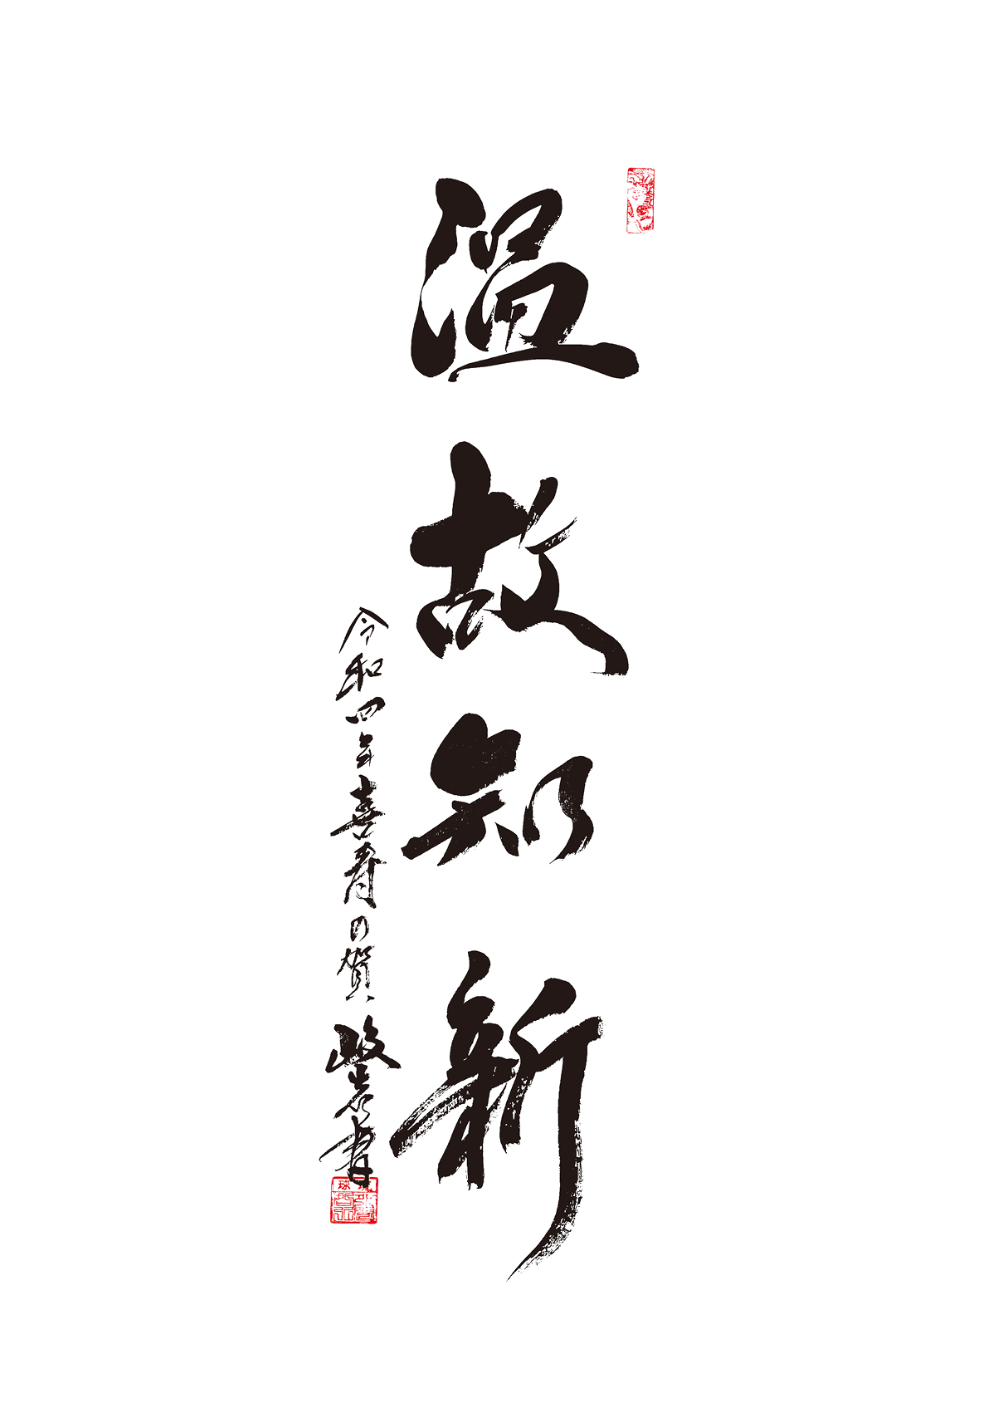 温故知新
令和四年喜寿の賀